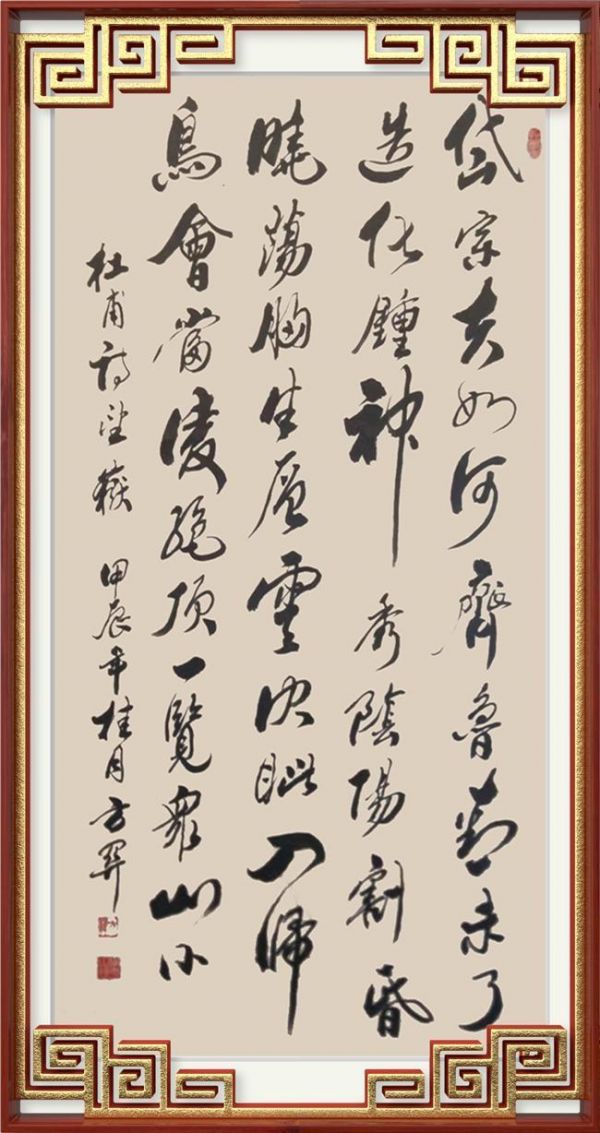 岱宗夫如何齊魯青未了
造化鍾神秀陰陽割昏
曉蕩胸生層雲決眦入歸
鳥會當凌絕頂一覽眾山小
杜甫詩望嶽 甲辰年桂月方